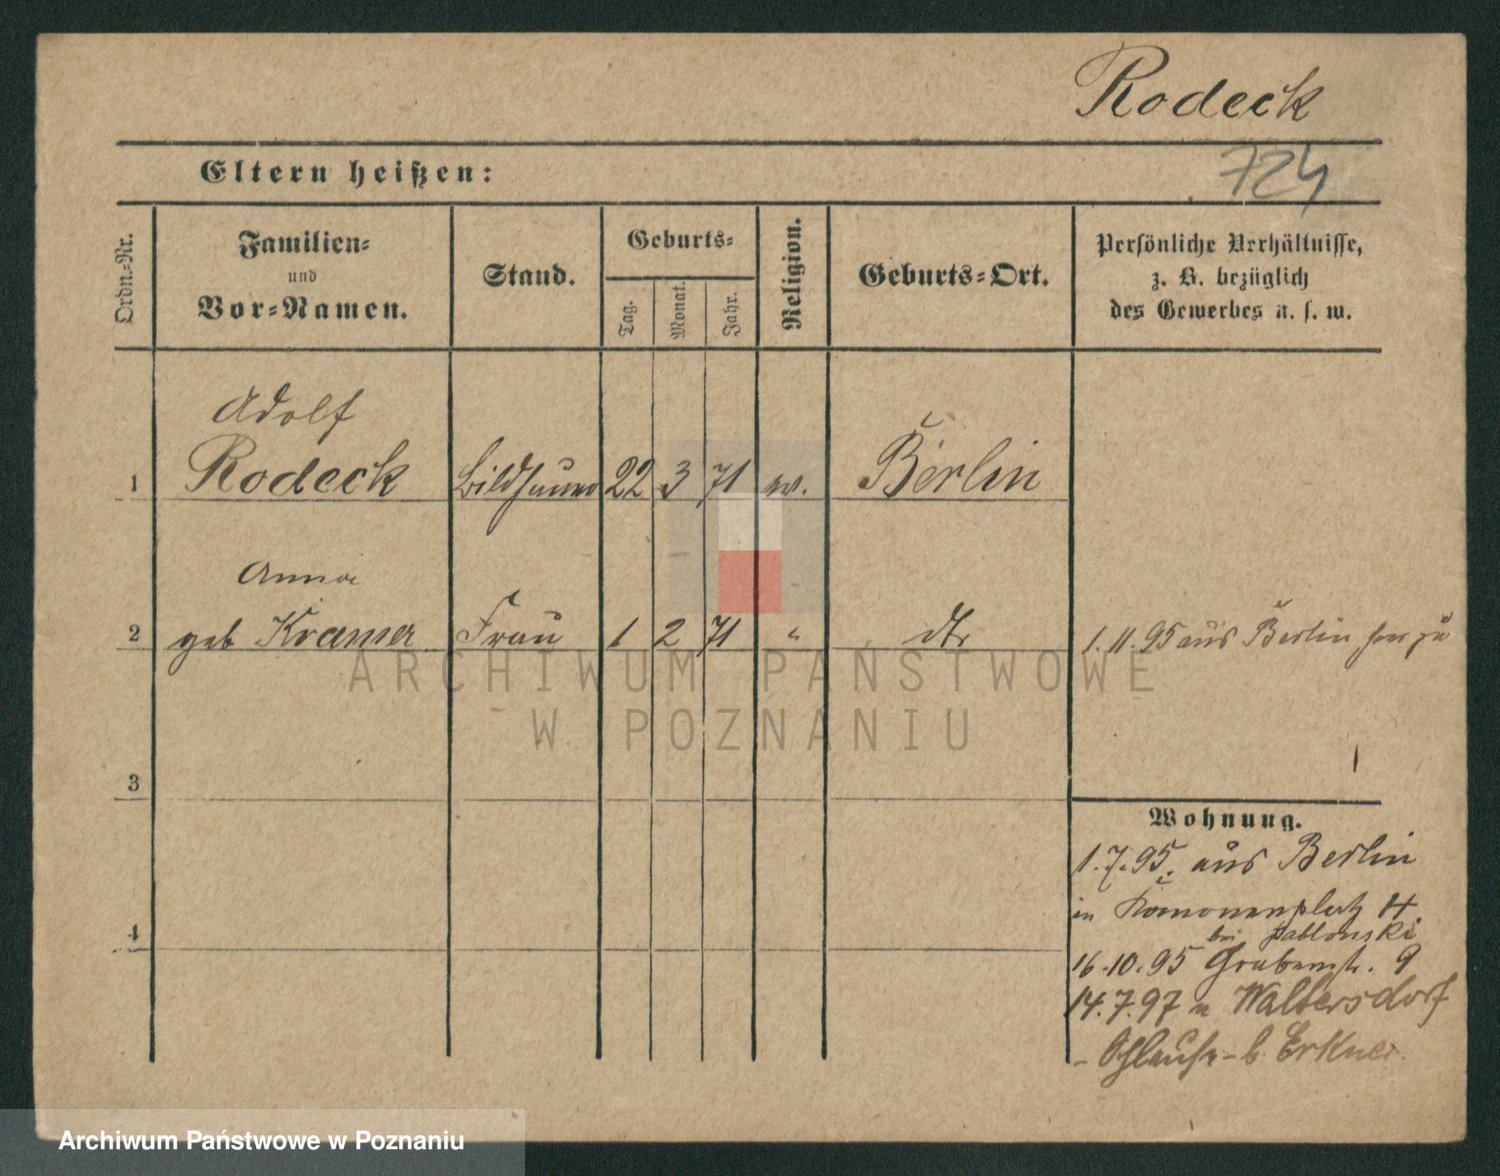 Rodeck
724
Eltern heißen:
Ordn.-Nr.
Familien-
und
Vor-Namen.
Stand.
Geburts-
Tag.
Monat.
Jahr.
Religion.
Geburts-Ort.
Persönliche Verhältnisse,
z. B. bezüglich
des Gewerbes u. s. w.
Adolf
1 Rodeck Bildhauer 22 3 71 ev. Berlin
Anna
2 geb Kramer Frau 1 2 71 " dto
1.11.95 aus Berlin herzu
3
4
Wohnung.
1.7.95. aus Berlin
in 4.
bei Jablonski
16.10.95 Grabenstr. 9
14.7.97 n Waltersdorf
b. Erkner.
ARCHIWUM PAŃSTWOWE
W POZNANIU
Archiwum Państwowe w Poznaniu